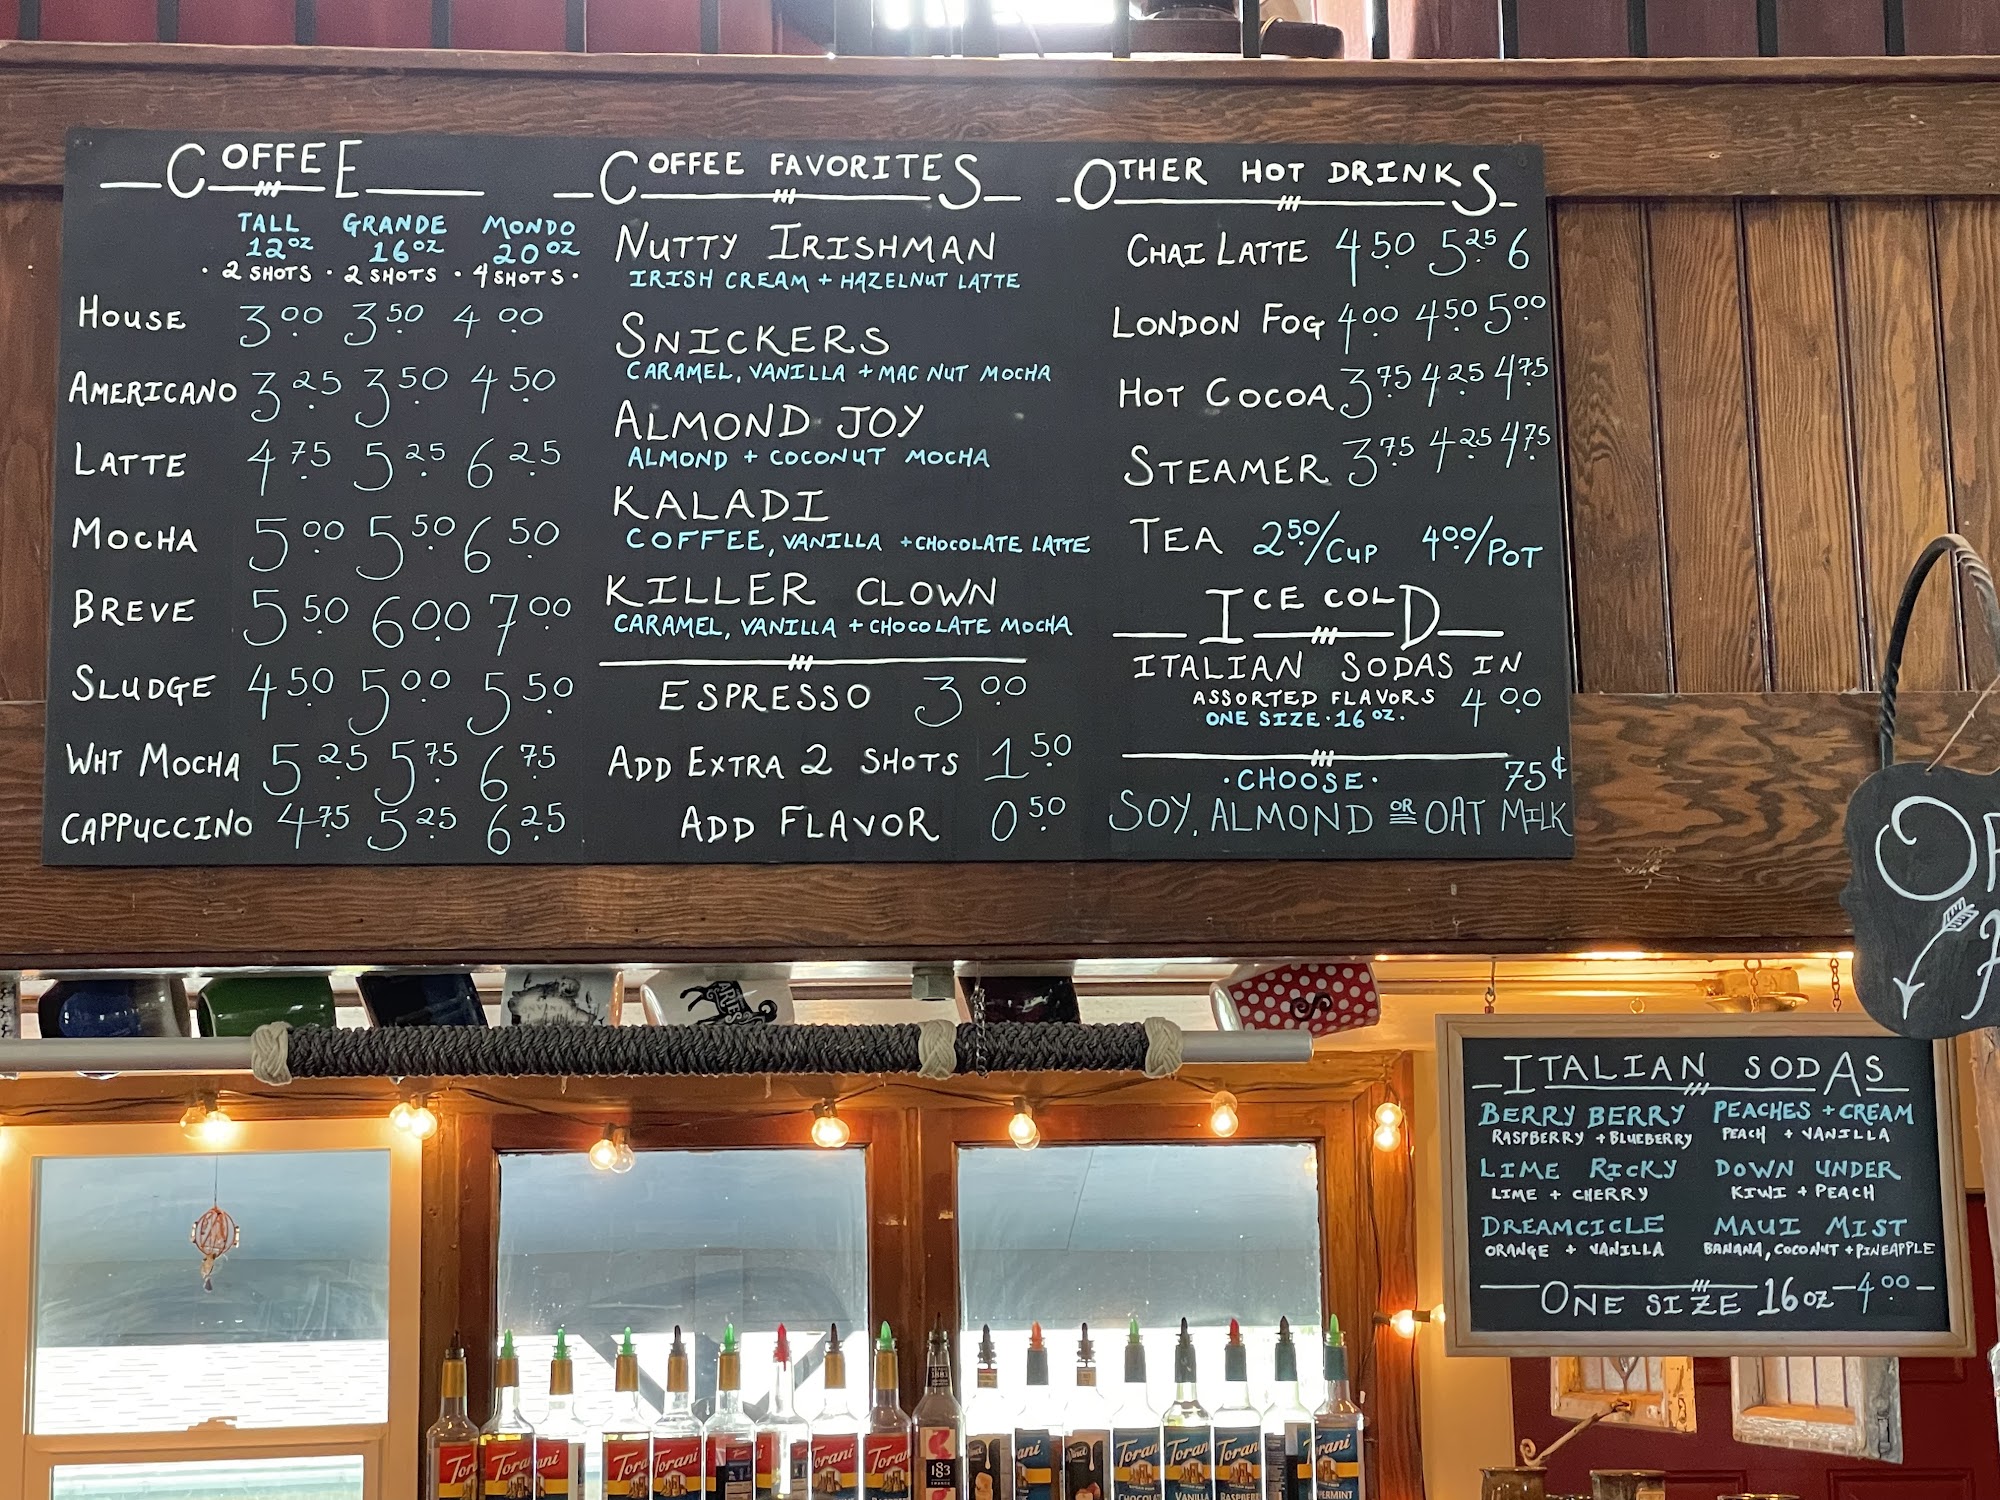 COFFEE
TALL GRANDE MONDO
12oz 16oz 20oz
· 2 SHOTS · 2 SHOTS · 4 SHOTS ·
HOUSE 3.00 3.50 4.00
AMERICANO 3.25 3.50 4.50
LATTE 4.75 5.25 6.25
MOCHA 5.00 5.50 6.50
BREVE 5.50 6.00 7.00
SLUDGE 4.50 5.00 5.50
WHT MOCHA 5.25 5.75 6.75
CAPPUCCINO 4.75 5.25 6.25
COFFEE FAVORITES
NUTTY IRISHMAN
IRISH CREAM + HAZELNUT LATTE
SNICKERS
CARAMEL, VANILLA + MAC NUT MOCHA
ALMOND JOY
ALMOND + COCONUT MOCHA
KALADI
COFFEE, VANILLA + CHOCOLATE LATTE
KILLER CLOWN
CARAMEL, VANILLA + CHOCOLATE MOCHA
ESPRESSO 3.00
ADD EXTRA 2 SHOTS 1.50
ADD FLAVOR 0.50
OTHER HOT DRINKS
CHAI LATTE 4.50 5.25 6
LONDON FOG 4.00 4.50 5.00
HOT COCOA 3.75 4.25 4.75
STEAMER 3.75 4.25 4.75
TEA 2.50/CUP 4.00/POT
ICE COLD
ITALIAN SODAS IN
ASSORTED FLAVORS 4.00
ONE SIZE · 16 oz.
· CHOOSE · 75¢
SOY, ALMOND OR OAT MILK
ARIES
ITALIAN SODAS
BERRY BERRY
RASPBERRY + BLUEBERRY
LIME RICKY
LIME + CHERRY
DREAMCICLE
ORANGE + VANILLA
PEACHES + CREAM
PEACH + VANILLA
DOWN UNDER
KIWI + PEACH
MAUI MIST
BANANA, COCONUT + PINEAPPLE
ONE SIZE 16oz 4.00
Torani
Torani
Torani
Torani
Torani
1883
Torani
VANILLA
Torani
Torani